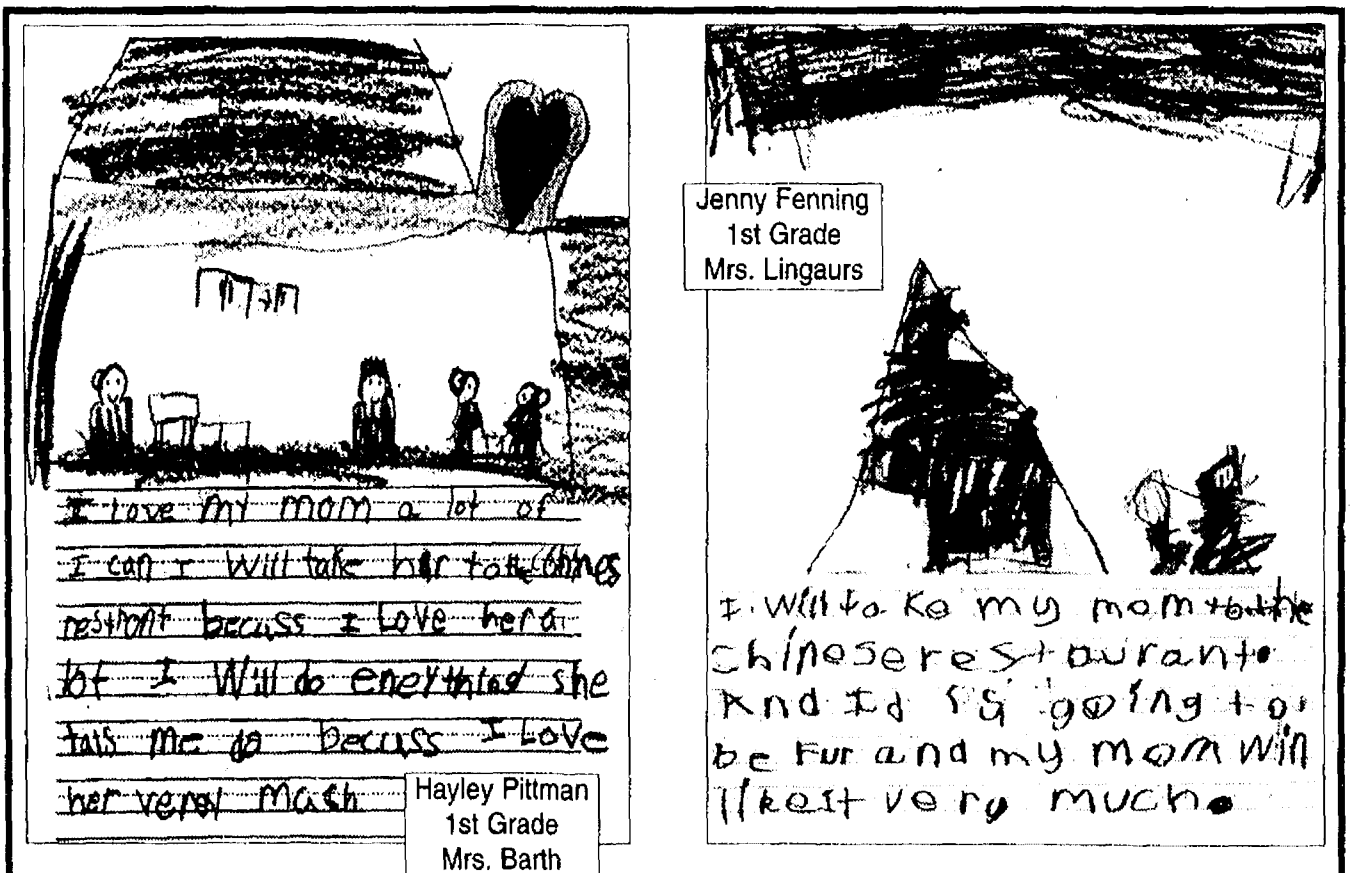 I Love my mom a lot of
I can I Will take her to the Chines
restront becuss I Love her a
lot I Will do eneything she
tals me do becuss I Love
her verey mach
Hayley Pittman
1st Grade
Mrs. Barth
Jenny Fenning
1st Grade
Mrs. Lingaurs
I Will take my mom to the
Chinese restaurant.
And Id is going to
be Fur and my mom will
like it very much.